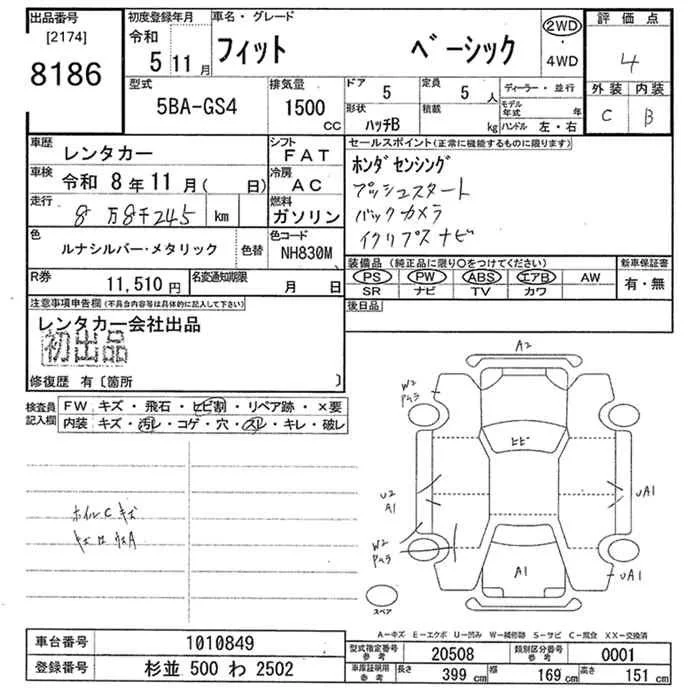 出品番号
[2174]
8186
初度登録年月
令和
5 11月
車名・グレード
フィット ベーシック
2WD
・
4WD
評価点
4
外装 内装
C B
型式
5BA-GS4
排気量
1500
CC
ドア
5
定員
5 人
形状
ハッチB
積載
kg
ディーラー・並行
モデル年式 年
ハンドル 左・右
車歴
レンタカー
シフト
FAT
車検
令和 8年 11月( 日)
冷房
AC
走行
8万8千245 km
燃料
ガソリン
色
ルナシルバー・メタリック
色替
色コード
NH830M
R券
11,510 円
名変通知期限
月 日
セールスポイント(正常に機能するものに限ります)
ホンダセンシング
プッシュスタート
バックカメラ
イクリプスナビ
装備品(純正品に限り○をつけてください)
PS PW ABS エアB AW
SR ナビ TV カワ
新車保証書
有・無
後日品
注意事項申告欄(不具合内容等は具体的に記入して下さい)
レンタカー会社出品
初出品
修復歴 有〔箇所 〕
検査員記入欄
FW キズ・飛石・ヒビ割・リペア跡・×要
内装 キズ・汚レ・コゲ・穴・スレ・キレ・破レ
ホイルCキズ
A2
W2
ヒビ
U2
A1
UA1
W2
A1
UA1
スペア
A−キズ E−エクボ U−凹み W−補修跡 S−サビ C−腐食 XX−交換済
車台番号
1010849
登録番号
杉並 500 わ 2502
型式指定番号
参考
20508
類別区分番号
参考
0001
車庫証明用
参考
長さ 399 cm 幅 169 cm 高さ 151 cm